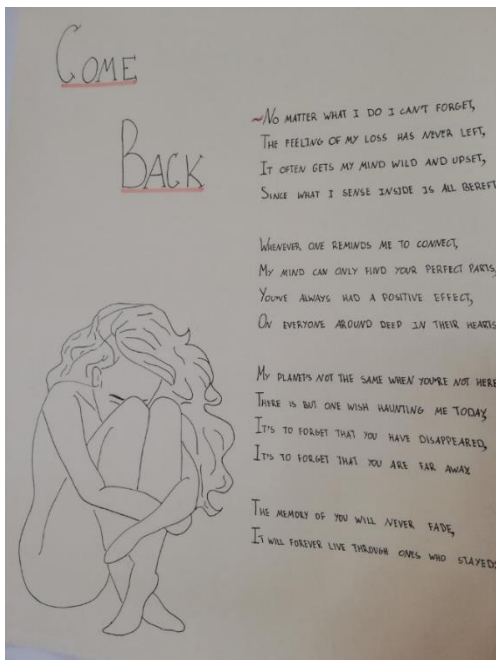 COME
BACK
~NO MATTER WHAT I DO I CAN'T FORGET,
THE FEELING OF MY LOSS HAS NEVER LEFT,
IT OFTEN GETS MY MIND WILD AND UPSET,
SINCE WHAT I SENSE INSIDE IS ALL BEREFT
WHENEVER ONE REMINDS ME TO CONNECT,
MY MIND CAN ONLY FIND YOUR PERFECT PARTS,
YOU'VE ALWAYS HAD A POSITIVE EFFECT,
ON EVERYONE AROUND DEEP IN THEIR HEARTS
MY PLANET'S NOT THE SAME WHEN YOU'RE NOT HERE
THERE IS BUT ONE WISH HAUNTING ME TODAY,
IT'S TO FORGET THAT YOU HAVE DISAPPEARED,
IT'S TO FORGET THAT YOU ARE FAR AWAY.
THE MEMORY OF YOU WILL NEVER FADE,
IT WILL FOREVER LIVE THROUGH ONES WHO STAYED.